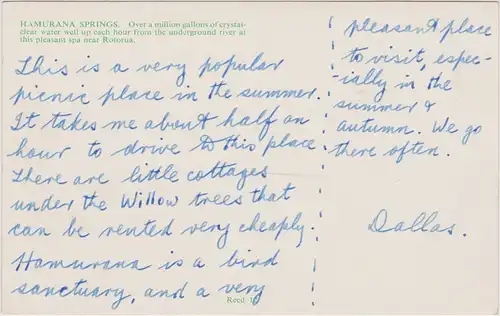 HAMURANA SPRINGS. Over a million gallons of crystal-
clear water well up each hour from the underground river at
this pleasant spa near Rotorua.
This is a very popular
picnic place in the summer.
It takes me about half an
hour to drive to this place.
There are little cottages
under the Willow trees that
can be rented very cheaply.
Hamurana is a bird
sanctuary, and a very
Reed
pleasant place
to visit, espec-
-ially in the
summer &
autumn. We go
there often.
Dallas.